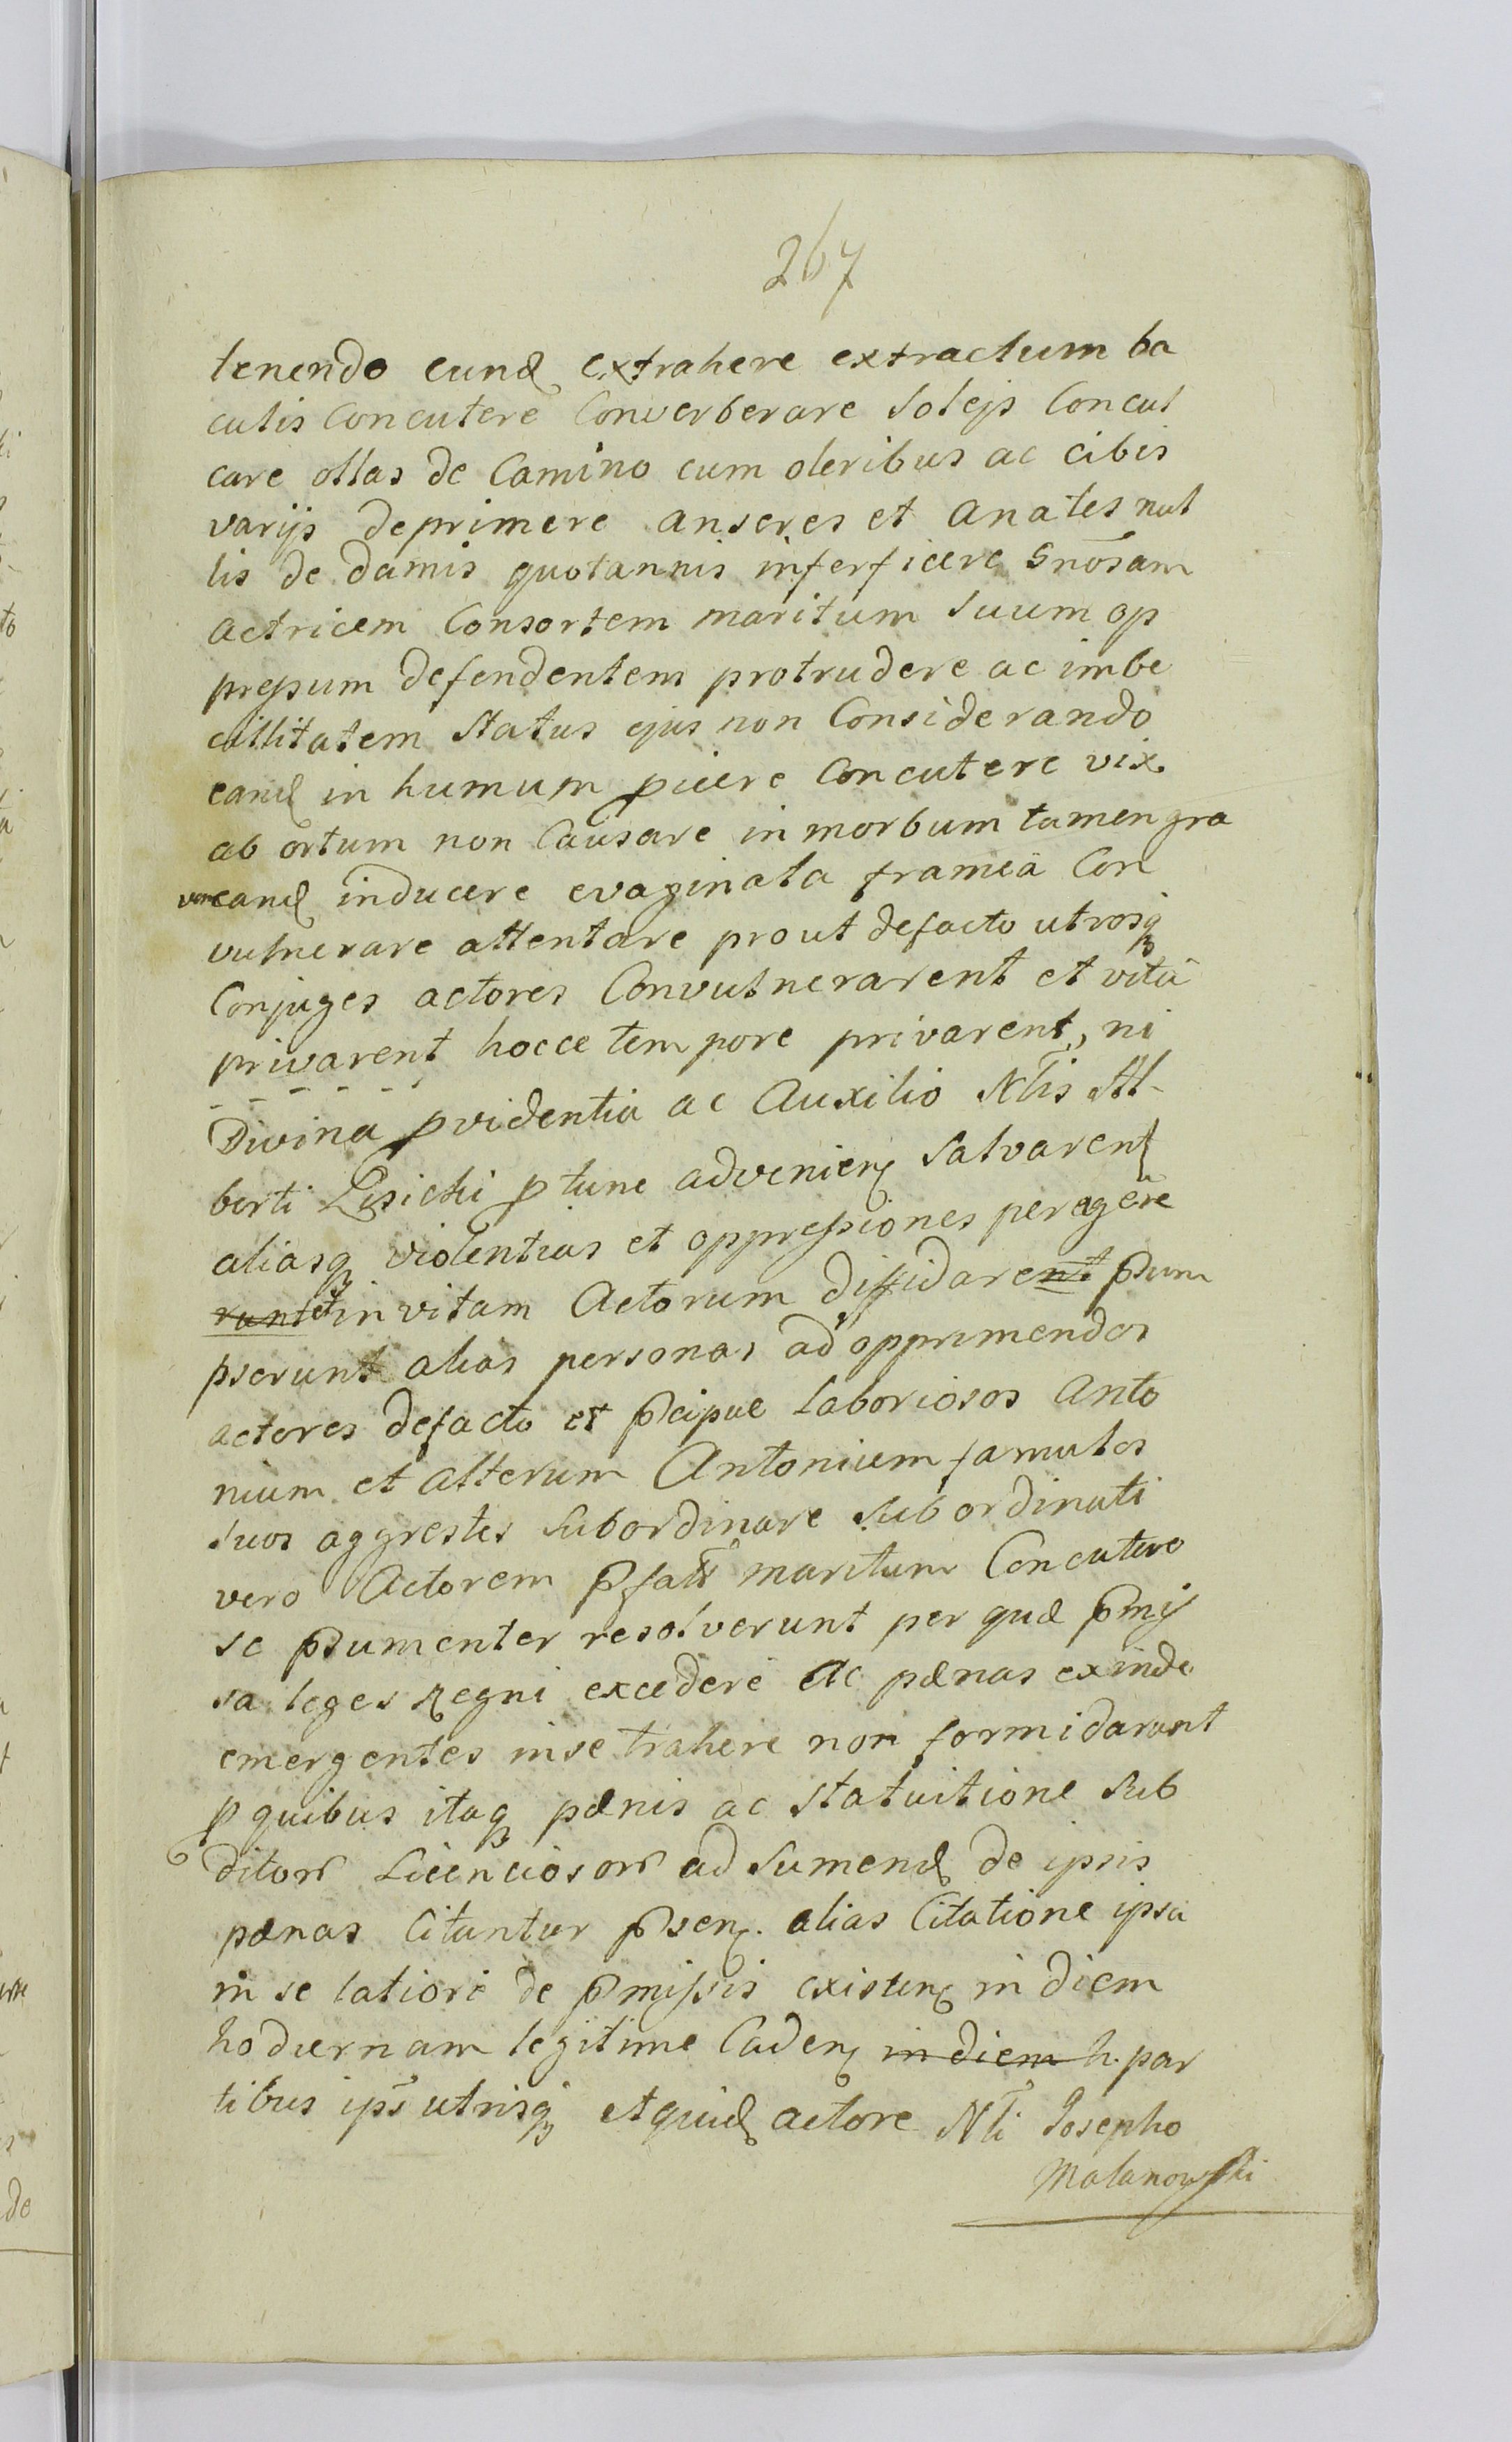 267
tenendo eund extrahere extractum ba
culis Concutere Converberare Solejs Concul
care ollas de Camino cum oleribus ac cibis
varijs deprimere anseres et Anates nul
lis de damis quotannis inferficere Gnosam
actricem Consortem maritum Suum op
pressum defendentem protrudere ac imbe
cillitatem Status ejus non Considerando
eand in humum pijcere Concutere vix
ab ortum non Causare in morbum tamen gra
vem eand inducere evaginata frameä Con
vulnerare attentare prout defacto utrosq
Conjuges actores Convulnerarent et vitâ
privarent hocce tempore privarent, ni
Divina pvidentia ac Auxilio Nlis Al-
berti Lisicki p tunc advenien Salvarent
aliasq violentias et oppressiones peragere
runt et in vitam Actorum diffidarent psum
pserunt alias personas ad opprimendos
actores defacto et pcipue laboriosos Anto
nium et alterum Antonium famulos
suos aggrestes Subordinare Subordinati
vero Actorem pfatt maritum Concutere
se psumenter resolverunt per quæ pmis
sa leges Regni excedere ac pænas exinde
emergentes inse trahere non formidarunt
p quibus itaq pænis ac Statuitione Sub
ditorr Licenciosorr ad Sumend de ipsis
pænas Citantur psen. alias Citatione ipsa
in se latiori de pmissis existen in diem
hodiernam legitime Caden in diem h. par
tibus ips utrisq etquid actore Nli Josepho
Malanowski